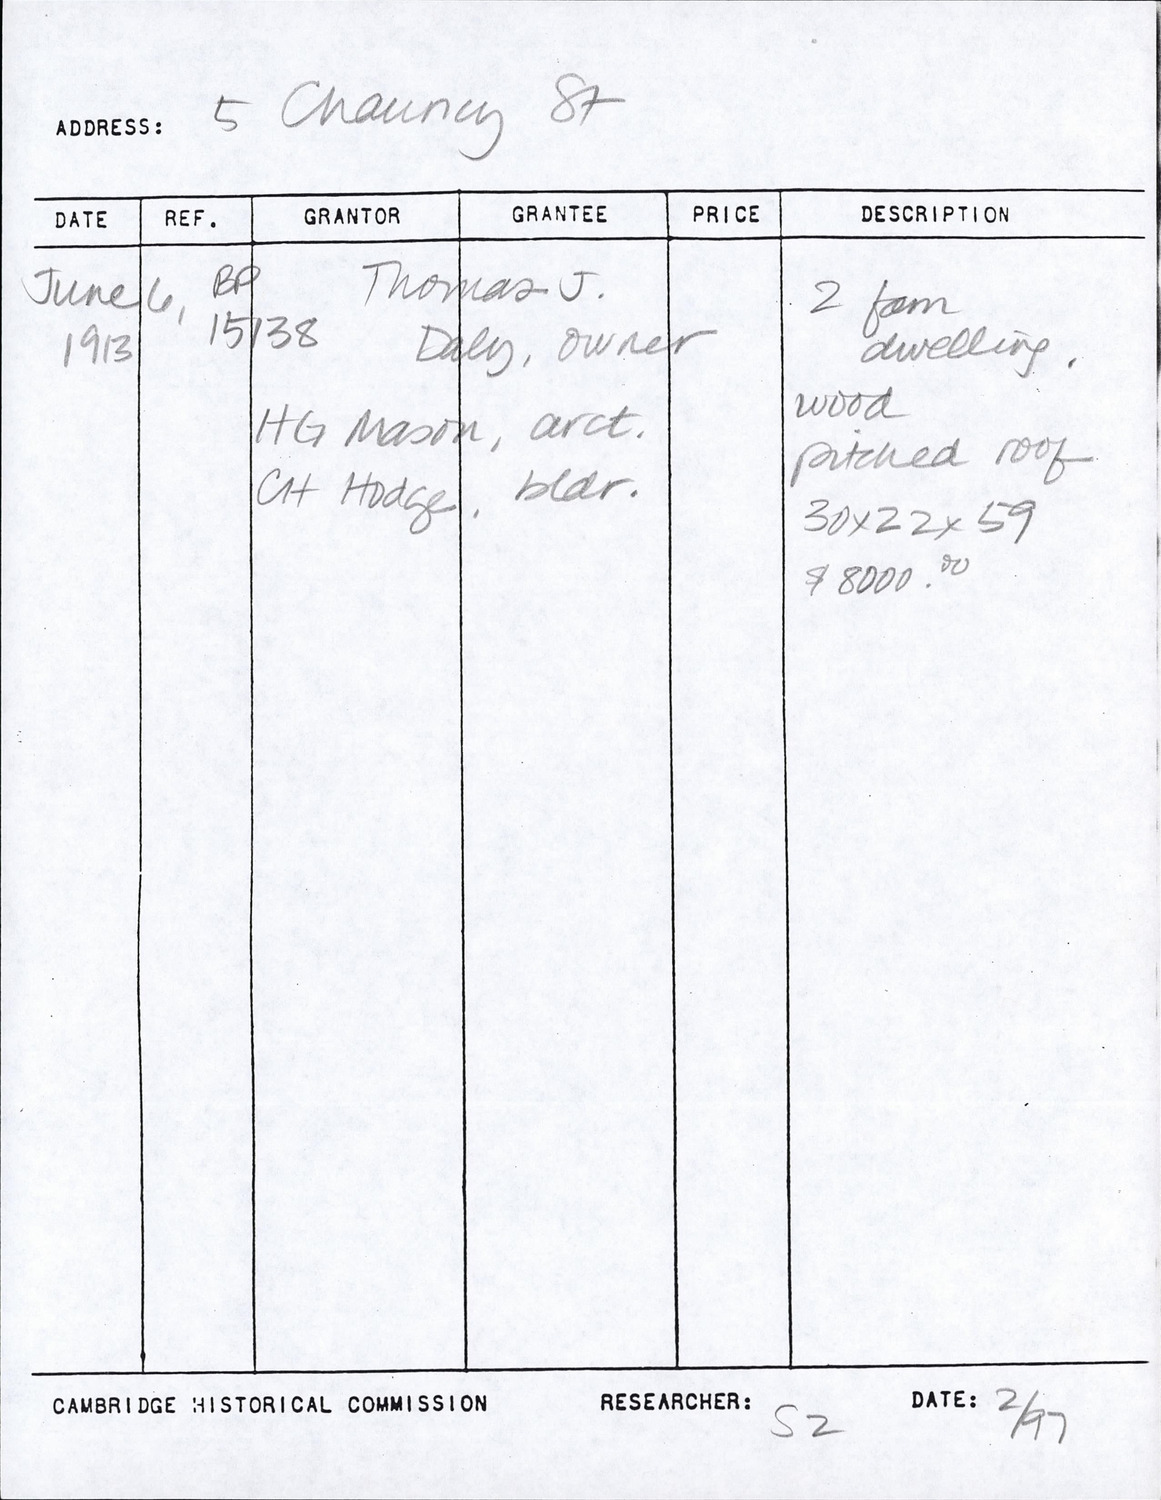 ADDRESS: 5 Chauncy St
DATE REF. GRANTOR GRANTEE PRICE DESCRIPTION
June 6, BP Thomas J. 2 fam
1913 15138 Daly, owner dwelling,
wood
HG Mason, arct.
pitched roof
CH Hodge, bldr.
30x22x59
$8000.00
CAMBRIDGE HISTORICAL COMMISSION RESEARCHER: SZ DATE: 2/97